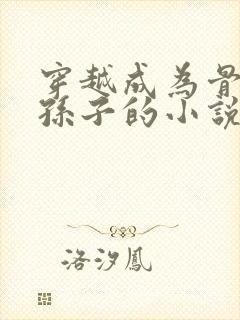 穿越成為骨
孫子的小說
洛汐鳳